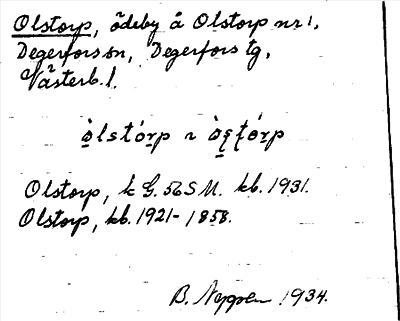 Olstorp, ödeby å Olstorp nr 1,
Degerfors sn, Degerfors tg,
Västerb. l.
Olstorp, k G. 56 S M. kb. 1931.
Olstorp, kb. 1921-1858.
B. 1934.